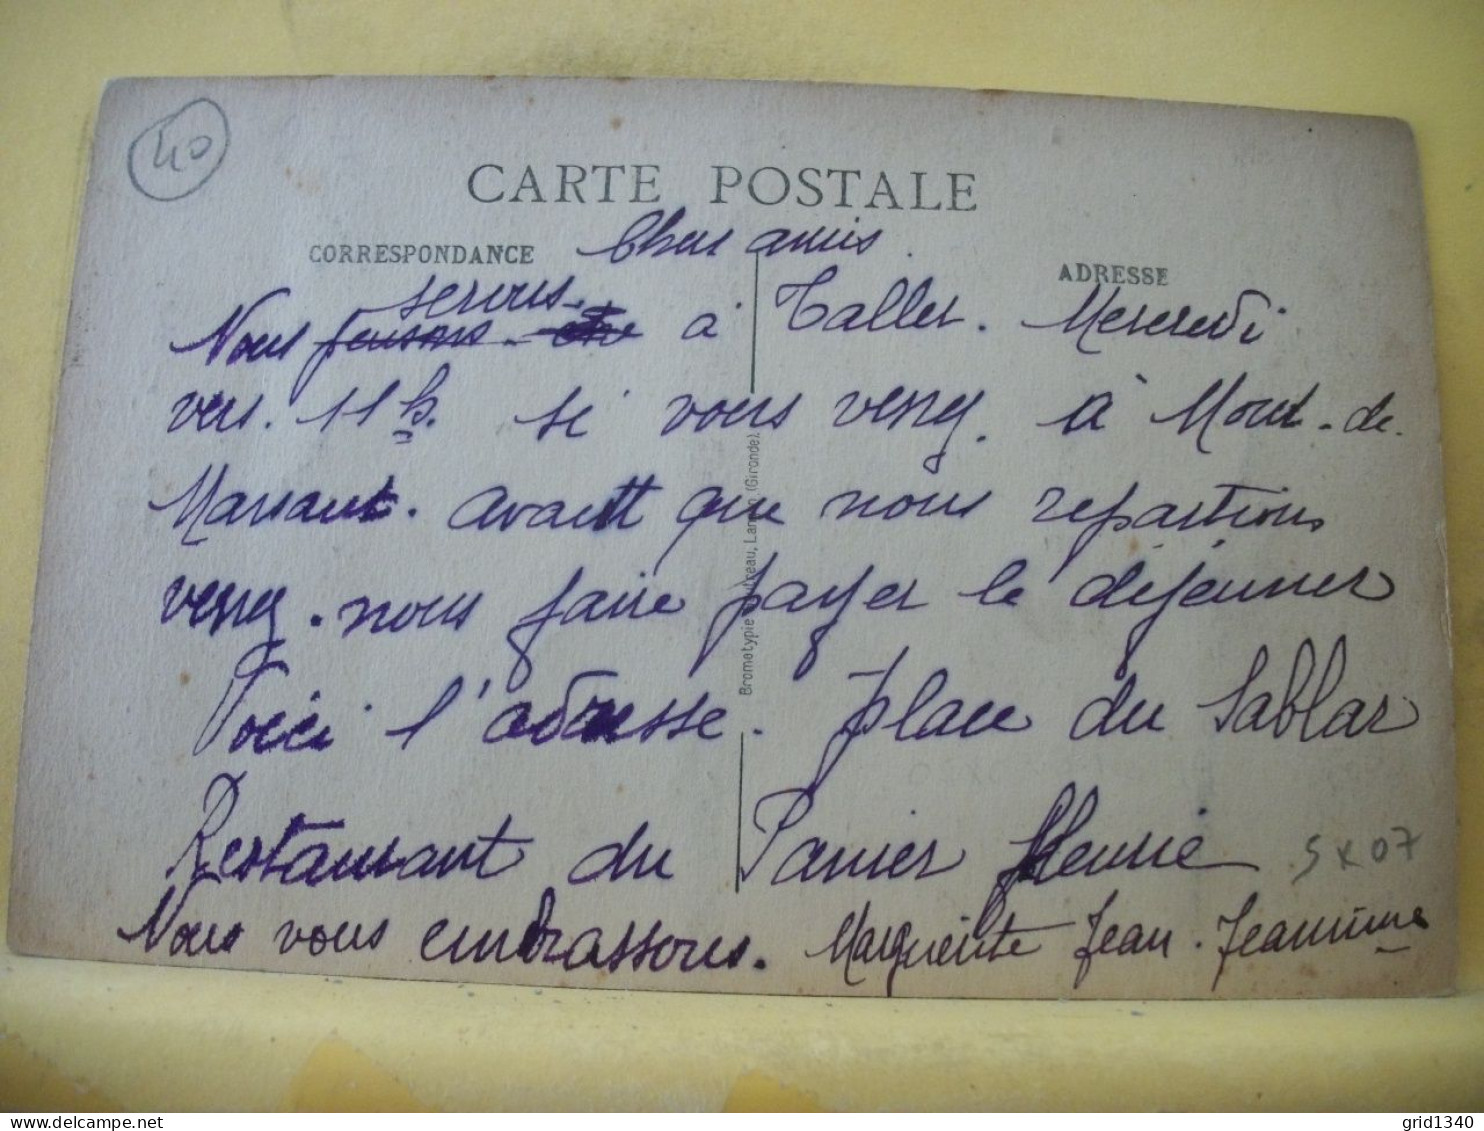 40
CARTE POSTALE
CORRESPONDANCE
Chers amis.
ADRESSE
serons
Nous pensons être à Taller. Mercredi
vers. 11 h. si vous venez. à Mont-de-
Marsant. avant que nous repartions
venez. nous faire payer le déjeuner
Voici l'adresse. place du Sablar
Restaurant du Panier fleurie
Nous vous embrassons. Marguerite Jean. Jeannine
5x07
Bromotypie (Gironde)
grid1340